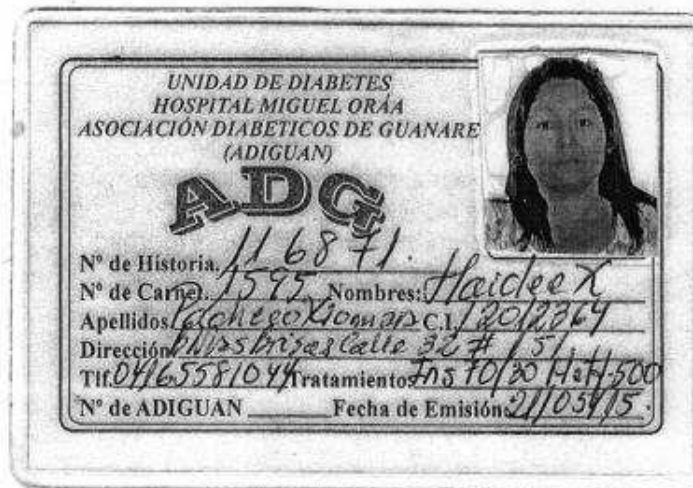 UNIDAD DE DIABETES
HOSPITAL MIGUEL ORÁA
ASOCIACIÓN DIABETICOS DE GUANARE
(ADIGUAN)
ADG
Nº de Historia. 116871.
Nº de Carnet. 1595 Nombres: Haidee X
Apellidos C.I. 12012364
Dirección Calle 32 # 151
Tlf. 04165581044 Tratamientos Ins 70/30 Met-500
Nº de ADIGUAN Fecha de Emisión: 21/05/15.